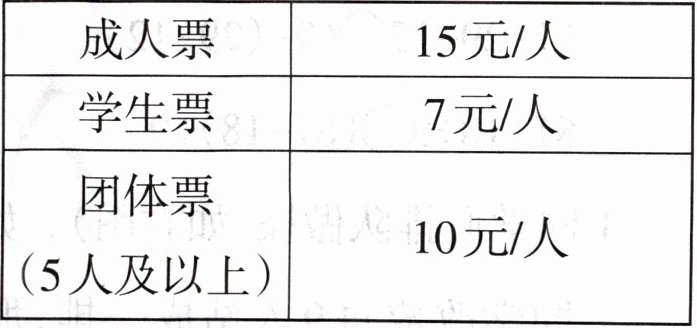 成人票 15元/人
学生票 7元/人
团体票
(5人及以上) 10元/人